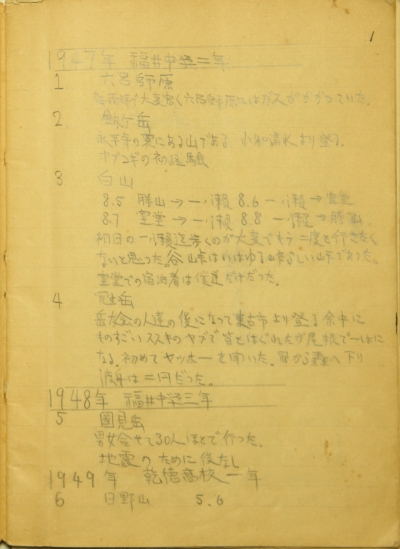 1
1947年 福井中学二年
1 六呂師原
大変 く六呂師原にはガスがかかっていた。
2 剣ヶ岳
永平寺の裏にある山である 小和清水より登る。
ボブコギの初経験
3 白山
8.5 勝山→一ノ瀬 8.6 一ノ瀬→室堂
8.7 室堂→一ノ瀬 8.8 一ノ瀬→勝山
初日の一ノ瀬迄歩くのが大変でもう二度と行きたく
ないと思った。 山 はいわゆる山 らしい山 であった。
室堂での宿泊者は僕達だけだった。
4 冠岳
岳友会の人達の後になって 市より登る 余中に
ものすごいススキのヤブで皆とはぐれたが尾根で一しょに
なる。初めてヤッホーを聞いた。 から へ下り
は二円だった。
1948年 福井中学三年
5 国見岳
男女合せて30人ほどで行った。
地震のために後なし
1949年 乾徳高校一年
6 日野山 5.6